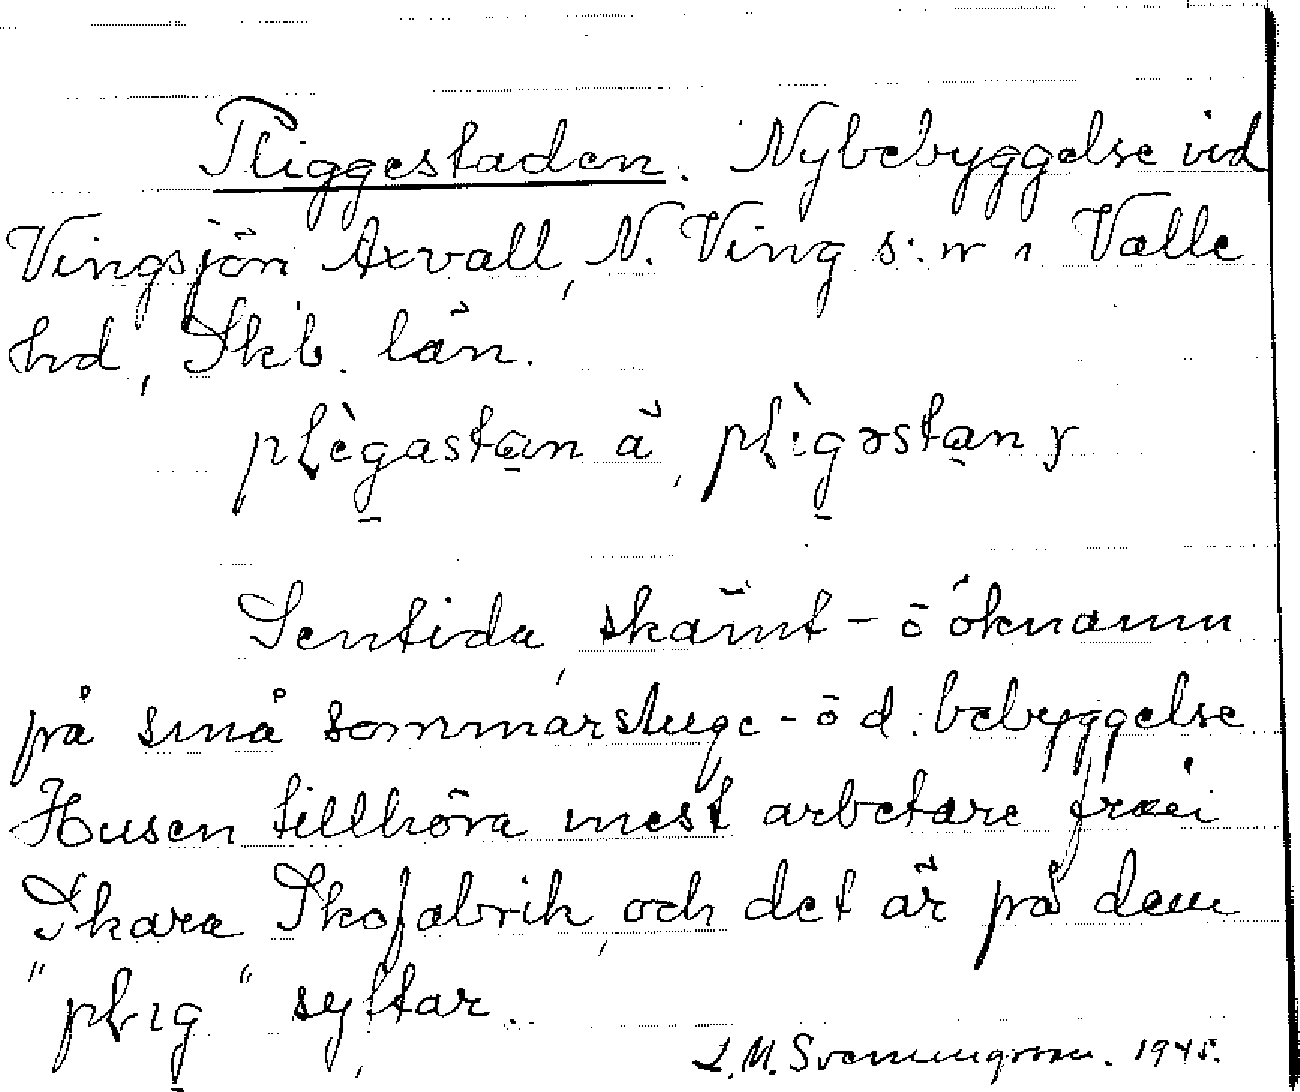 Pliggestaden. Nybebyggelse vid
Vingsjön Axvall, N. Ving s:n i Valle
hd, Skb. län.
pLìgastan ä, pLìgəstan y
Sentida, skämt- ō öknamn
på små sommarstuge- ō d. bebyggelse
Husen tillhöra mest arbetare från
Skara Skofabrik, och det är på dem
"pLig" syftar.
L.M. Svenungsson. 1945.